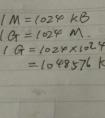 1 M = 1024 kB
1 G = 1024 M.
1 G = 1024 × 1024
= 1048576 k